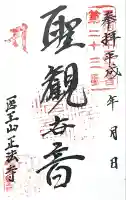 奉拝 平成 年 月 日
第二十三
聖観世音
医王山 正法寺